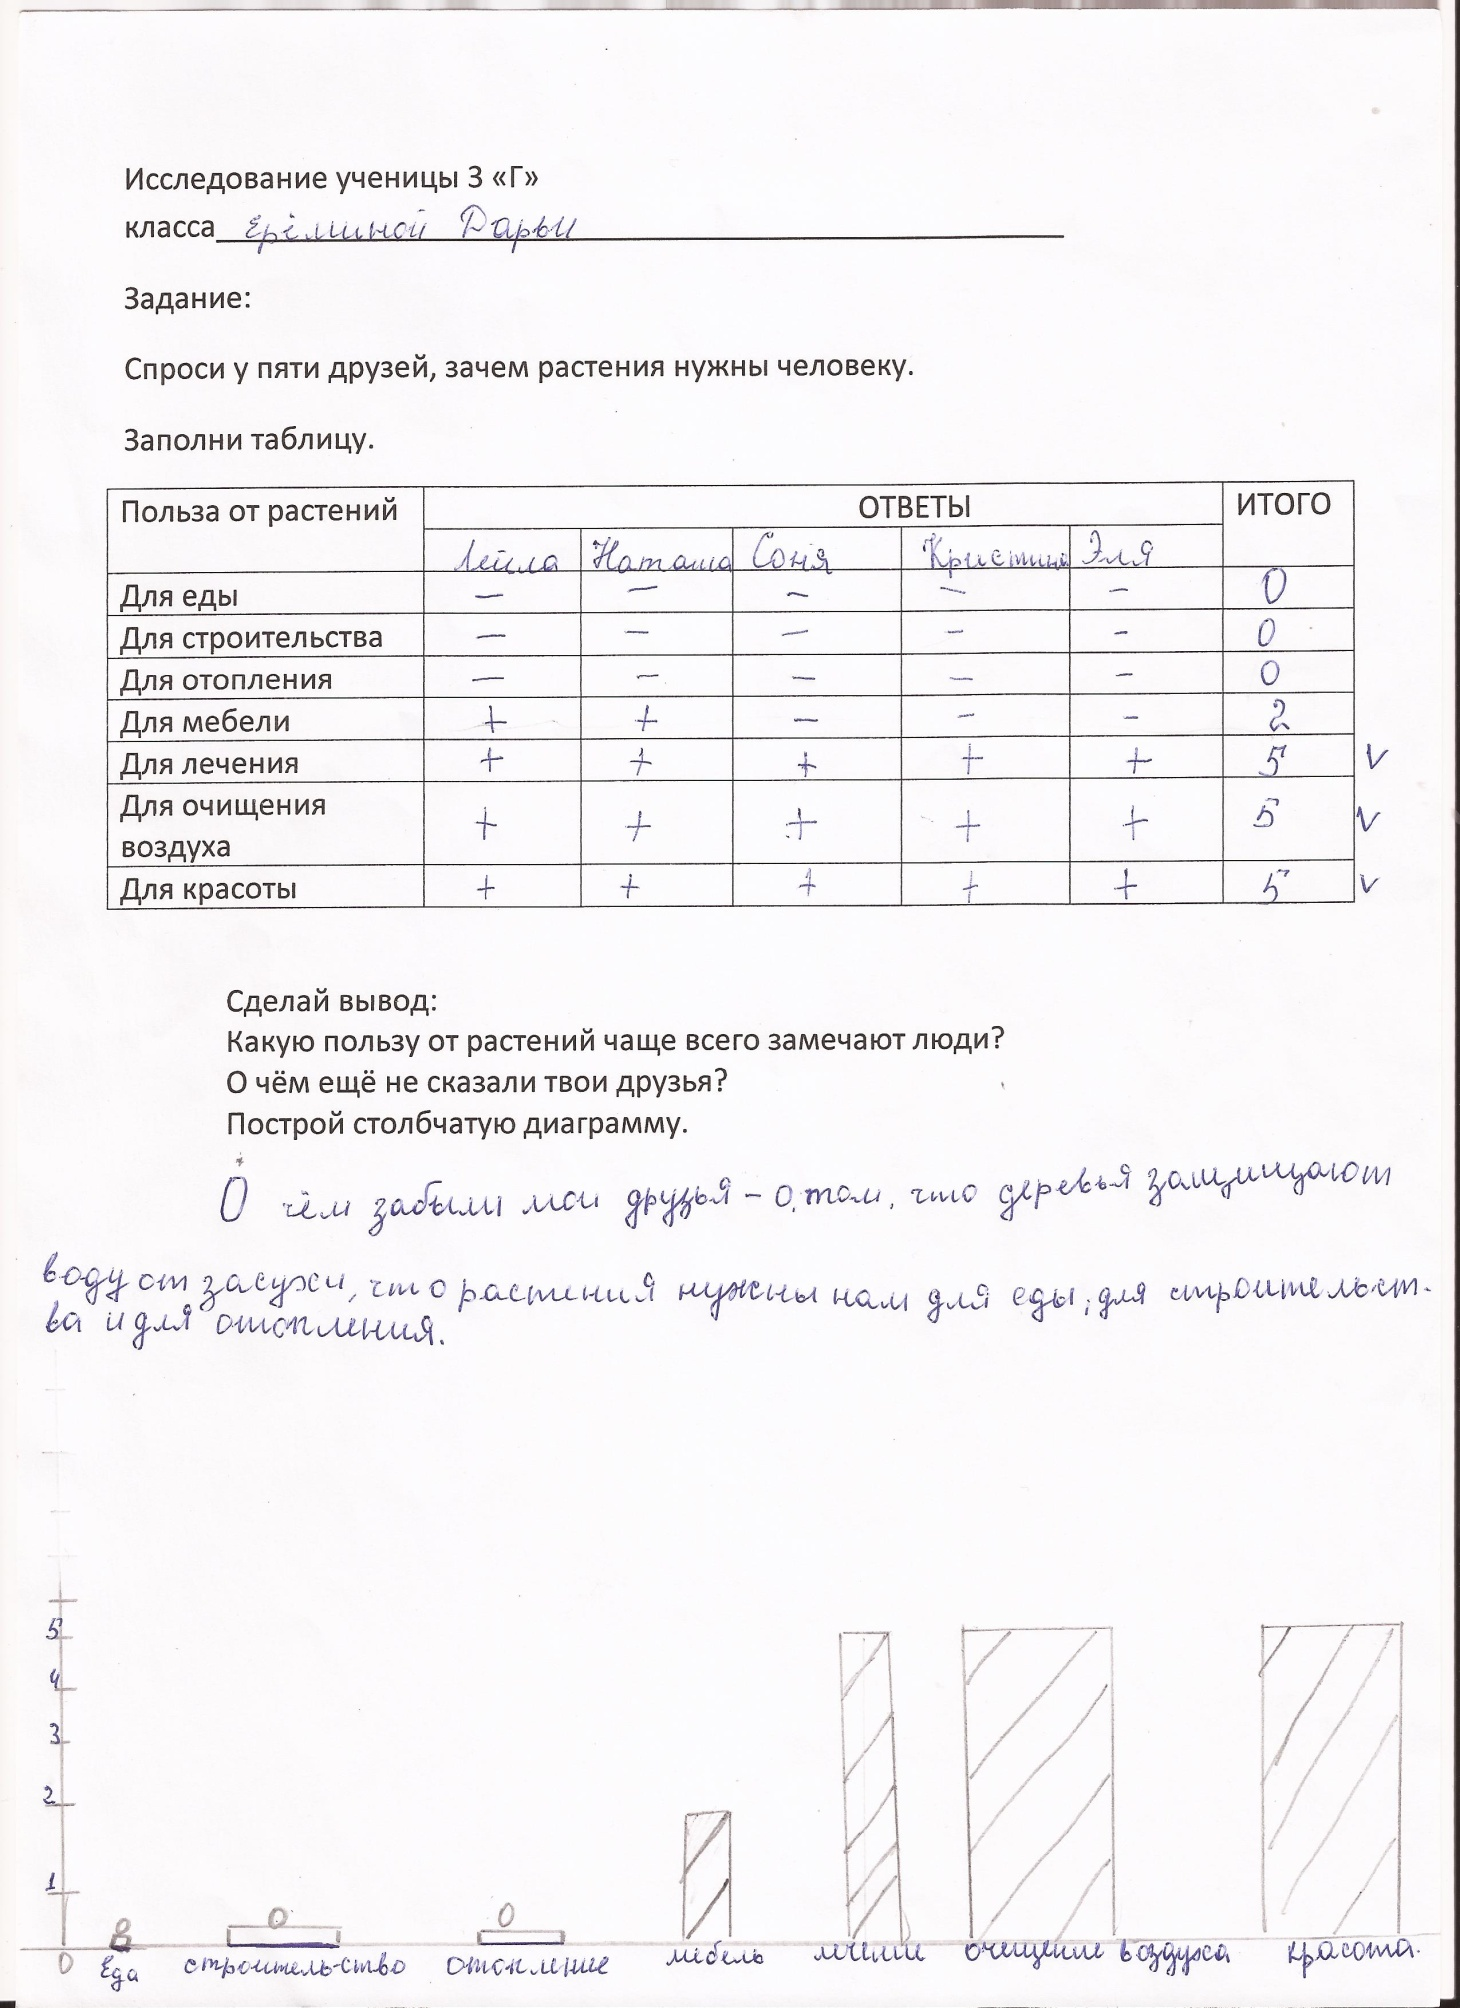 Исследование ученицы 3 «Г»
класса Ерёминой Дарьи
Задание:
Спроси у пяти друзей, зачем растения нужны человеку.
Заполни таблицу.
Польза от растений ОТВЕТЫ ИТОГО
Лейла Наташа Соня Кристина Эля
Для еды – – – – – 0
Для строительства – – – – – 0
Для отопления – – – – – 0
Для мебели + + – – – 2
Для лечения + + + + + 5 V
Для очищения
воздуха + + + + + 5 V
Для красоты + + + + + 5 V
Сделай вывод:
Какую пользу от растений чаще всего замечают люди?
О чём ещё не сказали твои друзья?
Построй столбчатую диаграмму.
О чём забыли мои друзья – о том, что деревья защищают
воду от засухи, что растения нужны нам для еды, для строительст-
ва и для отопления.
5
4
3
2
1
0 0 0
0 Еда строитель-ство отопление мебель лечение очищение воздуха красота.